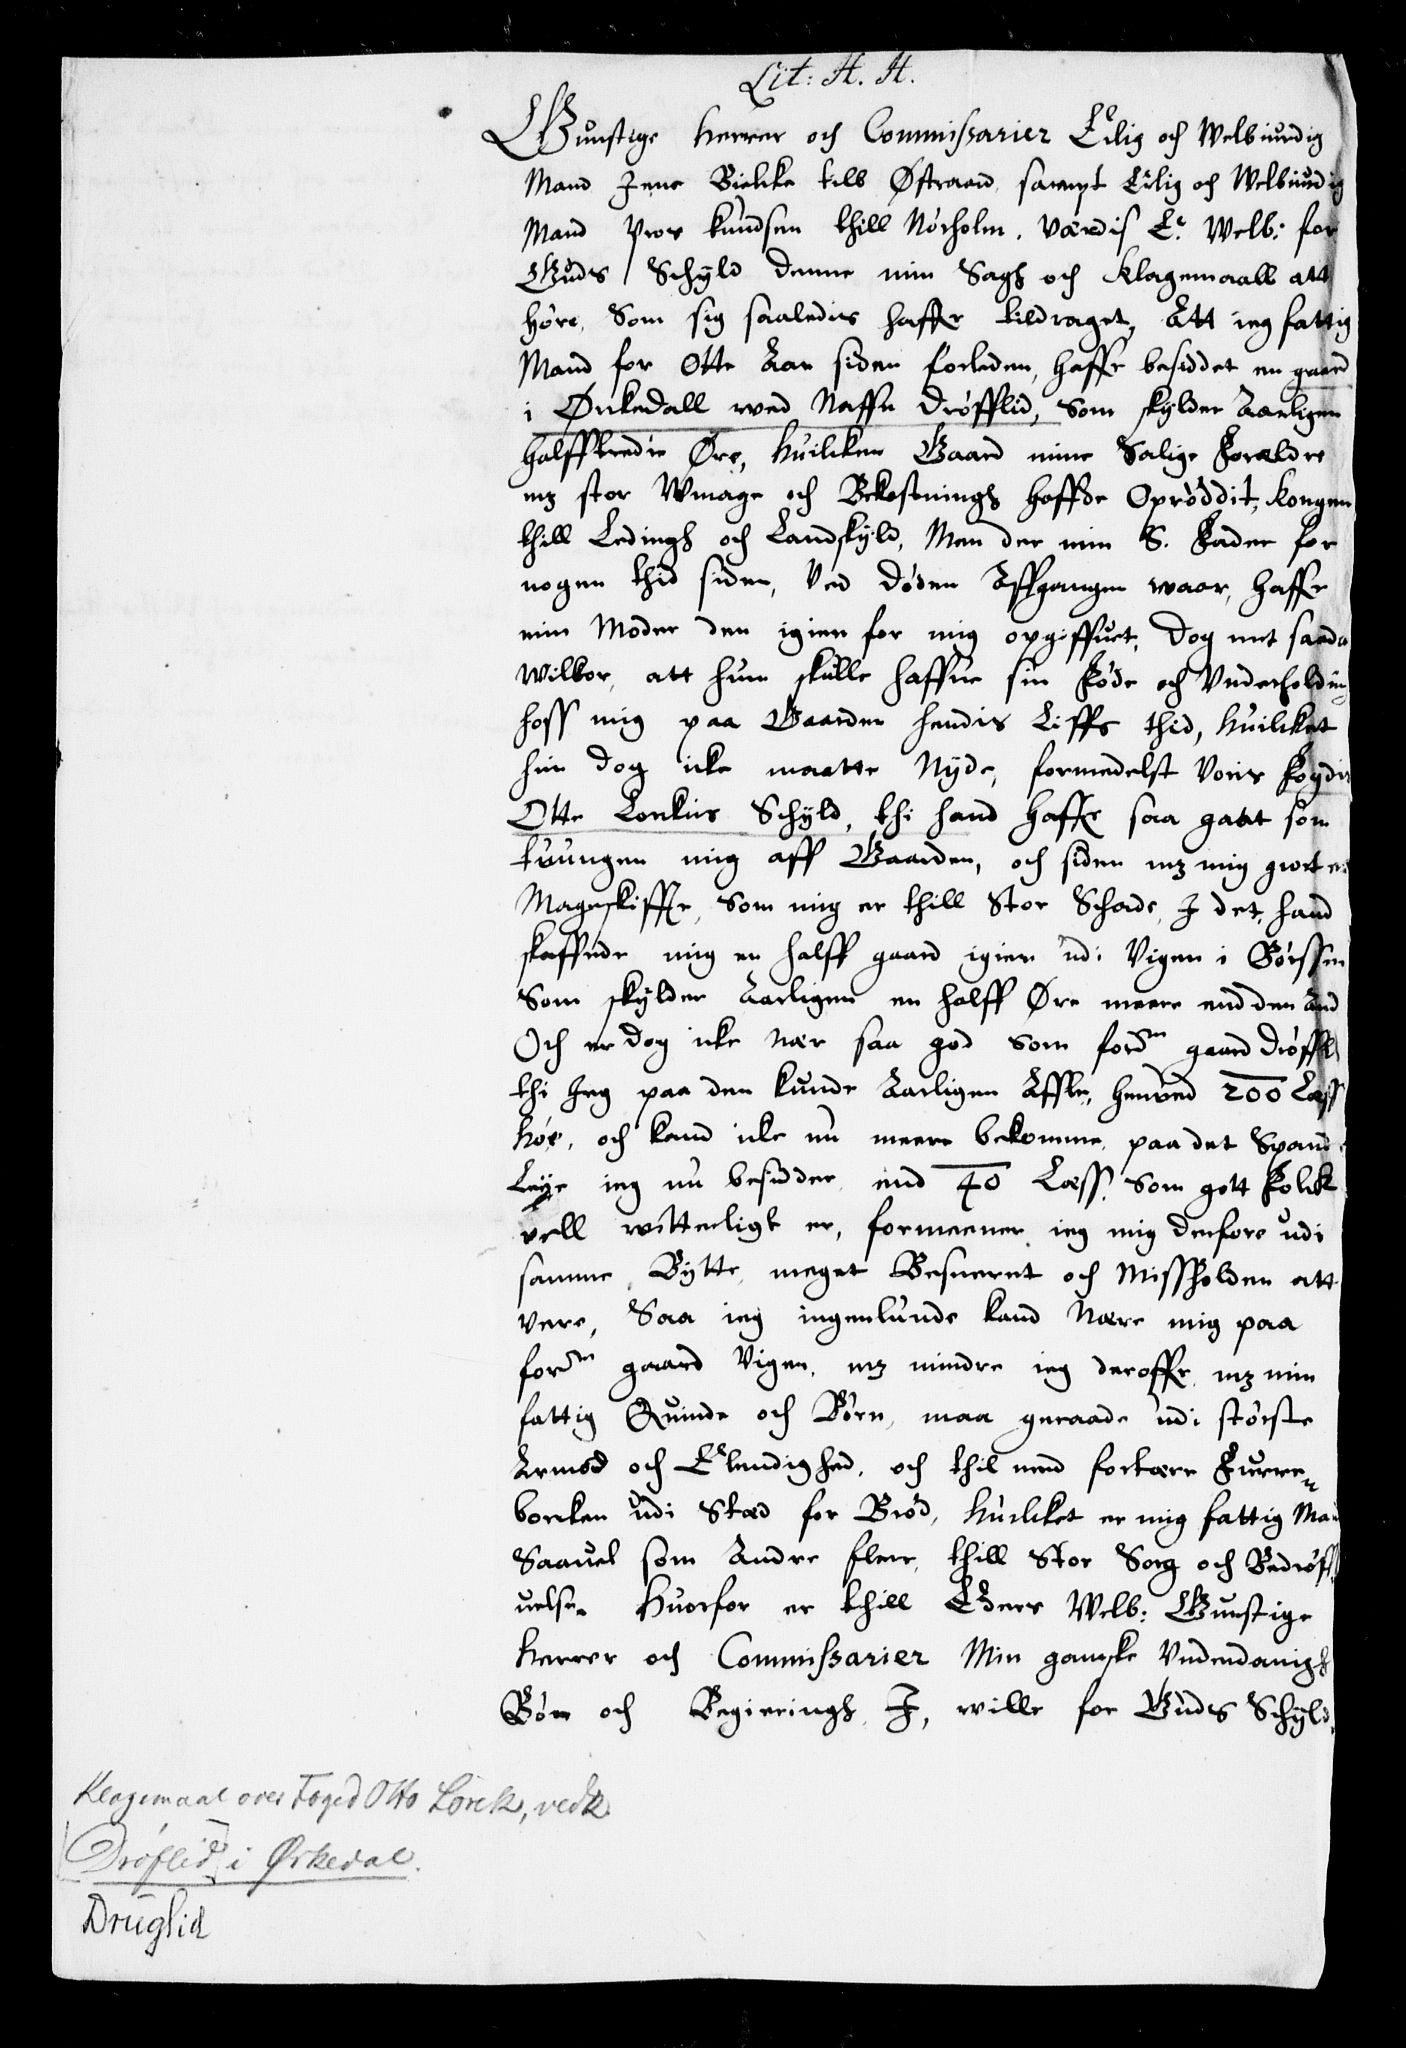 Lit: H. H.
Gunstige Herrer och Commissarier Erlig och Welbiurdig
Mand Jens Bielcke till Østraad sampt Erlig och Welbiurdig
Mand Pros Knudsen thill Nørholm. Verdis E. Welb: for
Guds Schyld denne min Sagh och Klagemaall att
høre, Som sig saaledis haffr tildraget, Att ieg fattig
Mand for Otte Aar siden forleden, haffr besiddet en gaard
i Ørkedall ved Naffn Drøfflid, Som skylder Aarligen
halfftredie Øre, huilcken Gaard mine Salige Forældre
mz stor Wmage och Bekostningh haffde Oprøddit, Kongen
thill Ledingh och Landskyld, Men der min S. Fader for
nogen thid siden, ved døden Affgangen waar, haffr
min Moder den igien for mig opgiffuet, Dog met saadan
wilkor, att hun skulle haffue sin Føde och Underholding
hoss mig paa Gaarden hendis Liffs thid, huilcket
hun dog icke maatte Nyde, formedelst Voris Fogdis
Otte Lorkis Schyld, thi hand haffr saa gaat som
tuungen mig aff Gaarden, och siden mz mig giort et
Mageskiffte, Som mig er thill Stor Schade, I det, hand
skaffede mig en halff gaard igien udi Vigen i Børssen
Som skylder Aarligen en halff Øre meere end den And
Och er dog icke nær saa god som ford:n gaard Drøffli
thi Jeg paa den kunde Aarligen Affle, henved 200 Læss
høe, och kand icke nu meere bekomme, paa det Spand
Leye ieg nu besidder end 40 Læss, Som gott Folck
vell witterligt er, formeener ieg mig derfore udi
samme Bytte, meget Besueret och Missholden att
vere, Saa ieg ingenlunde kand Nære mig paa
ford:n gaard Vigen, mz mindre ieg deroffr mz min
fattig Quinde och Børn, maa geraade udi største
Armod och Elendighed, och thil med fortære Furre
borcken udi Sted for Brød, huilcket er mig fattig Mand
Saauel som Andre flere, thill Stor Sorg och Bedrøff
uelse. Huorfor er thill Eders Welb: Gunstige
Herrer och Commissarier Min gandske Underdanigh
Bøn och Begieringh, I, wille for Guds Schyld
Klagemaal over Foged Otto Lorck, vedk
Drøflid i Ørkedal.
Druglid